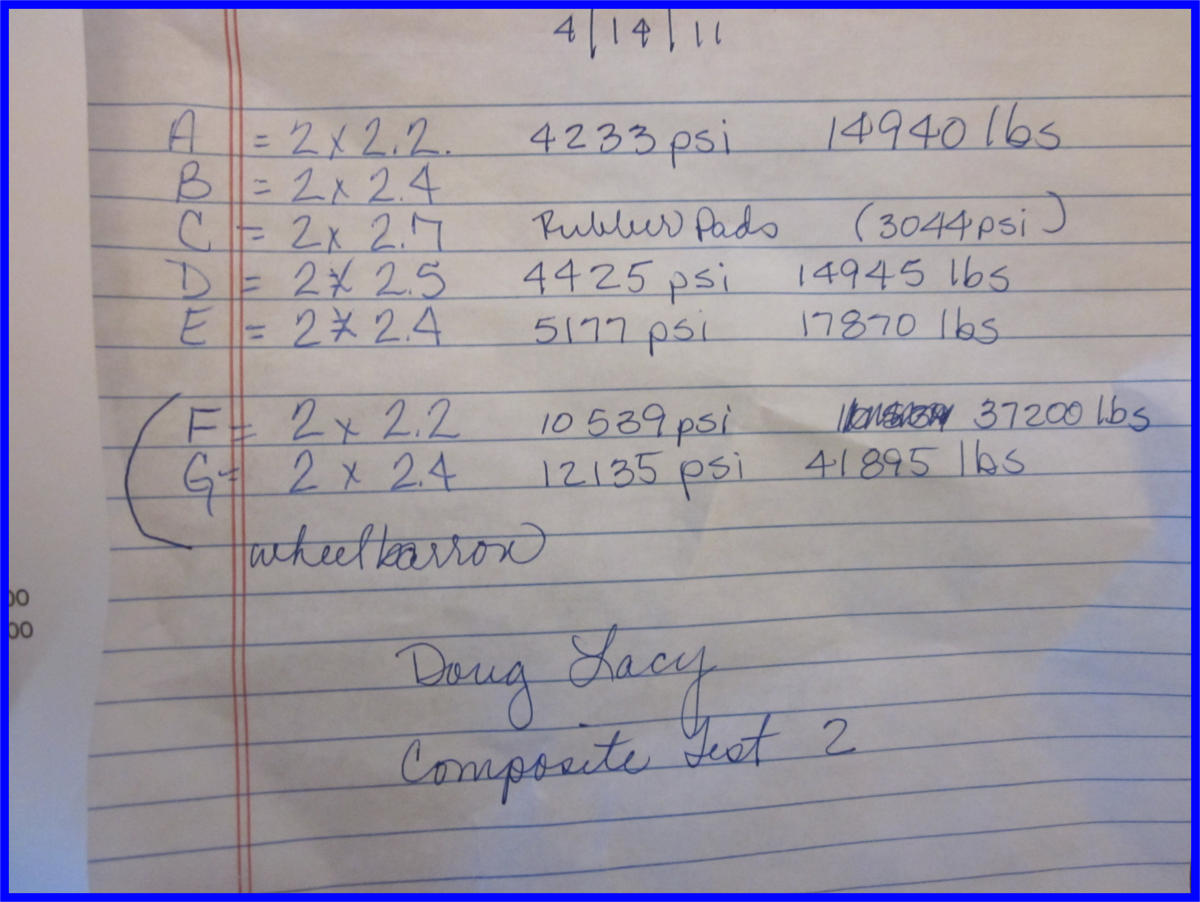 4/14/11
A = 2 x 2.2. 4233 psi 14940 lbs
B = 2 x 2.4
C = 2 x 2.7 Rubber Pads (3044 psi)
D = 2 x 2.5 4425 psi 14945 lbs
E = 2 x 2.4 5177 psi 17870 lbs
F = 2 x 2.2 10539 psi 37200 lbs
G = 2 x 2.4 12135 psi 41895 lbs
wheelbarrow
00
00
Doug Lacy
Composite Test 2